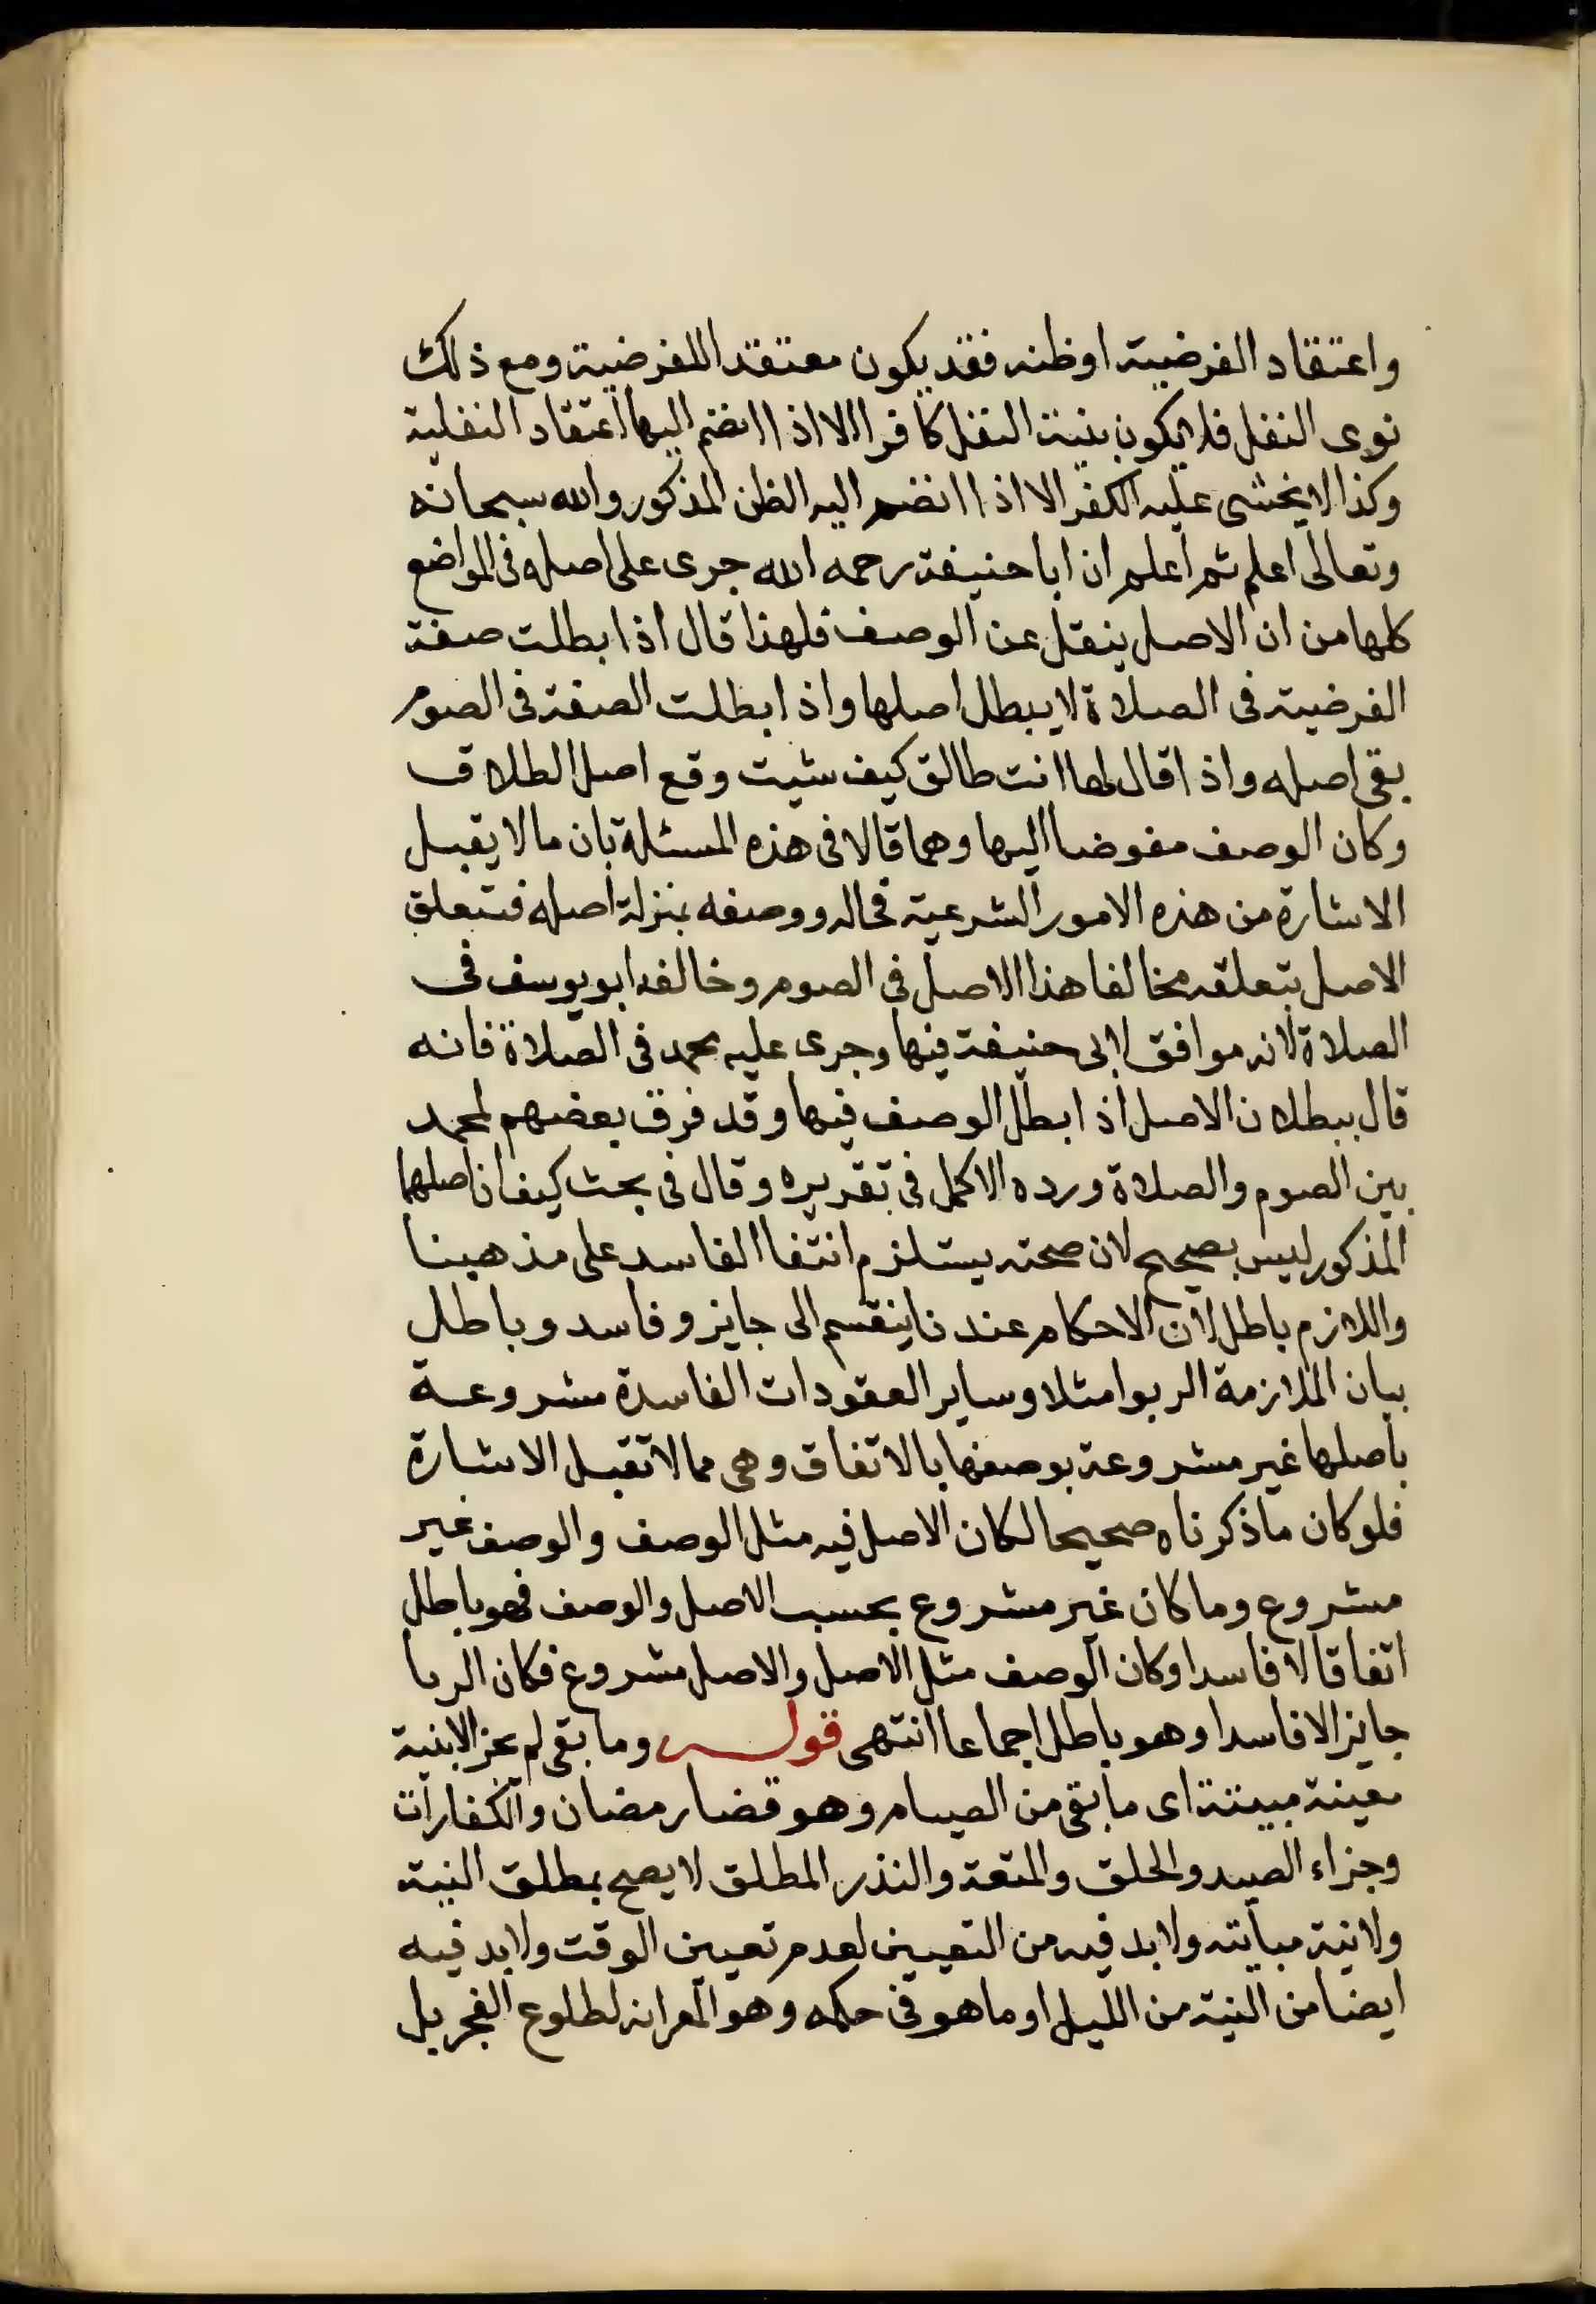 واعتقاد الفرضية او ظنه فقد يكون معتقدا للفرضية ومع ذلك
نوى النفل فلا يكون بنية النفل كافرا الا اذا انضم اليها اعتقاد النفلية
وكذا لا يخشى عليه الكفر الا اذا انضم اليه الظن المذكور والله سبحانه
وتعالى اعلم ثم اعلم ان ابا حنيفة رحمه الله جرى على اصله فى المواضع
كلها من ان الاصل ينقل عن الوصف فلهذا قال اذا بطلت صفة
الفرضية فى الصلاة لا يبطل اصلها واذا بطلت الصفة فى الصوم
بقى اصله واذا قال لها انت طالق كيف شيت وقع اصل الطلاق
وكان الوصف مفوضا اليها وهما قالا فى هذه المسئلة بان ما لا يقبل
الاشارة من هذه الامور الشرعية فحاله ووصفه بمنزلة اصله فتعلق
الاصل بتعلقه مخالفا هذا الاصل فى الصوم وخالفه ابو يوسف فى
الصلاة لانه موافق لابى حنيفة فيها وجرى عليه محمد فى الصلاة فانه
قال ببطلان الاصل اذا بطل الوصف فيها وقد فرق بعضهم لمحمد
بين الصوم والصلاة ورده الاكمل فى تقريره وقال فى بحث كيف ان اصلهما
المذكور ليس بصحيح لان صحته يستلزم انتفا الفاسد على مذهبنا
واللازم باطل لان الاحكام عندنا ينقسم الى جايز وفاسد وباطل
بيان الملازمة الربوا مثلا وساير العقودات الفاسدة مشروعة
باصلها غير مشروعة بوصفها بالاتفاق وهى مما لا تقبل الاشارة
فلو كان ما ذكرناه صحيحا لكان الاصل فيه مثل الوصف والوصف غير
مشروع وما كان غير مشروع بحسب الاصل والوصف فهو باطل
اتفاقا لا فاسدا وكان الوصف مثل الاصل والاصل مشروع فكان الربا
جايز الا فاسدا وهو باطل اجماعا انتهى قوله وما بقى لم يجز الا بنية
معينة مبيتة اى ما بقى من الصيام وهو قضا رمضان والكفارات
وجزاء الصيد والحلق والمتعة والنذر المطلق لا يصح بمطلق النية
ولا نية مباينة ولا بد فيه من التعيين لعدم تعيين الوقت ولا بد فيه
ايضا من النية من الليل او ما هو فى حكمه وهو لطلوع الفجر بل